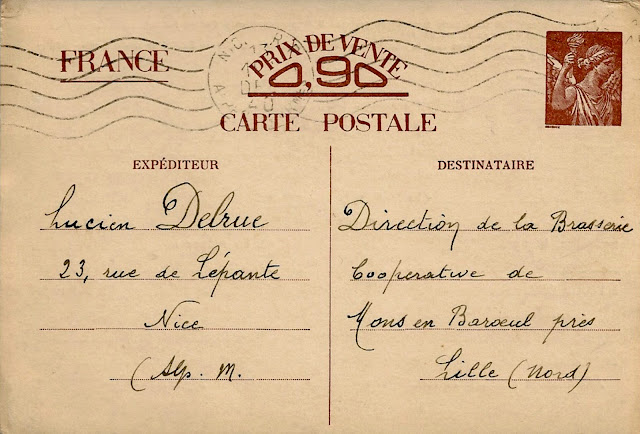 FRANCE
PRIX DE VENTE
0,90
CARTE POSTALE
EXPÉDITEUR
Lucien Delrue
23, rue de Lépante
Nice
(Alp. M.
DESTINATAIRE
Direction de la Brasserie
Cooperative de
Mons en Baroeul près
Lille (Nord)